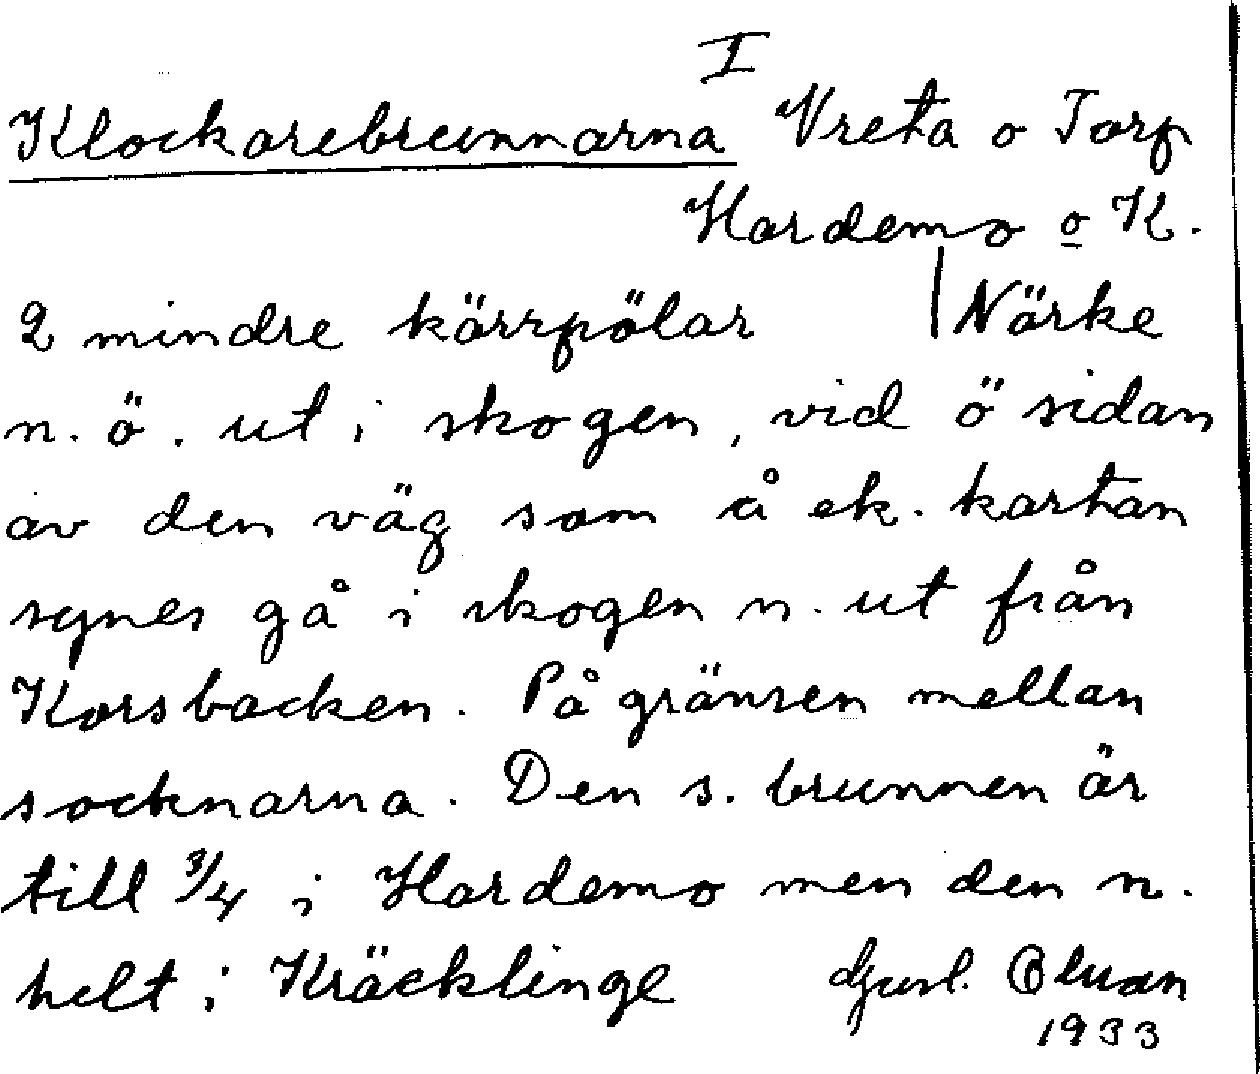 I
Klockarebrunnarna Vreta o Torp
Hardemo o K.
2 mindre kärrpölar Närke
n. ö. ut i skogen, vid ö sidan
av den väg som å ek. kartan
synes gå i skogen n. ut från
Korsbacken. På gränsen mellan
socknarna. Den s. brunnen är
till 3/4 i Hardemo men den n.
helt i Kräcklinge
1933